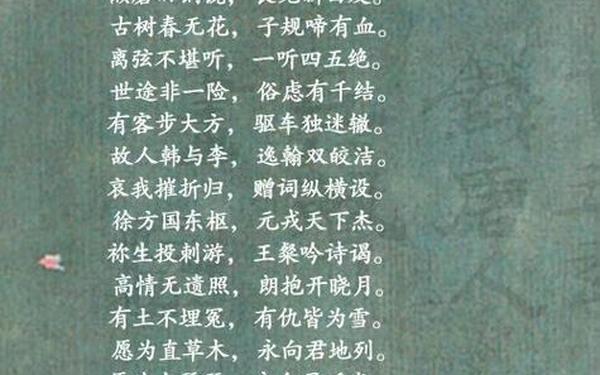 古树春无花，子规啼有血。
离弦不堪听，一听四五绝。
世途非一险，俗虑有千结。
有客步大方，驱车独迷辙。
故人韩与李，逸翰双皎洁。
哀我摧折归，赠词纵横设。
徐方国东枢，元戎天下杰。
祢生投刺游，王粲吟诗谒。
高情无遗照，朗抱开晓月。
有土不埋冤，有仇皆为雪。
愿为直草木，永向君地列。